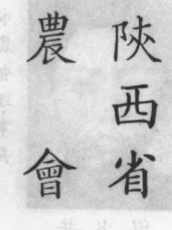 陝西省
農會